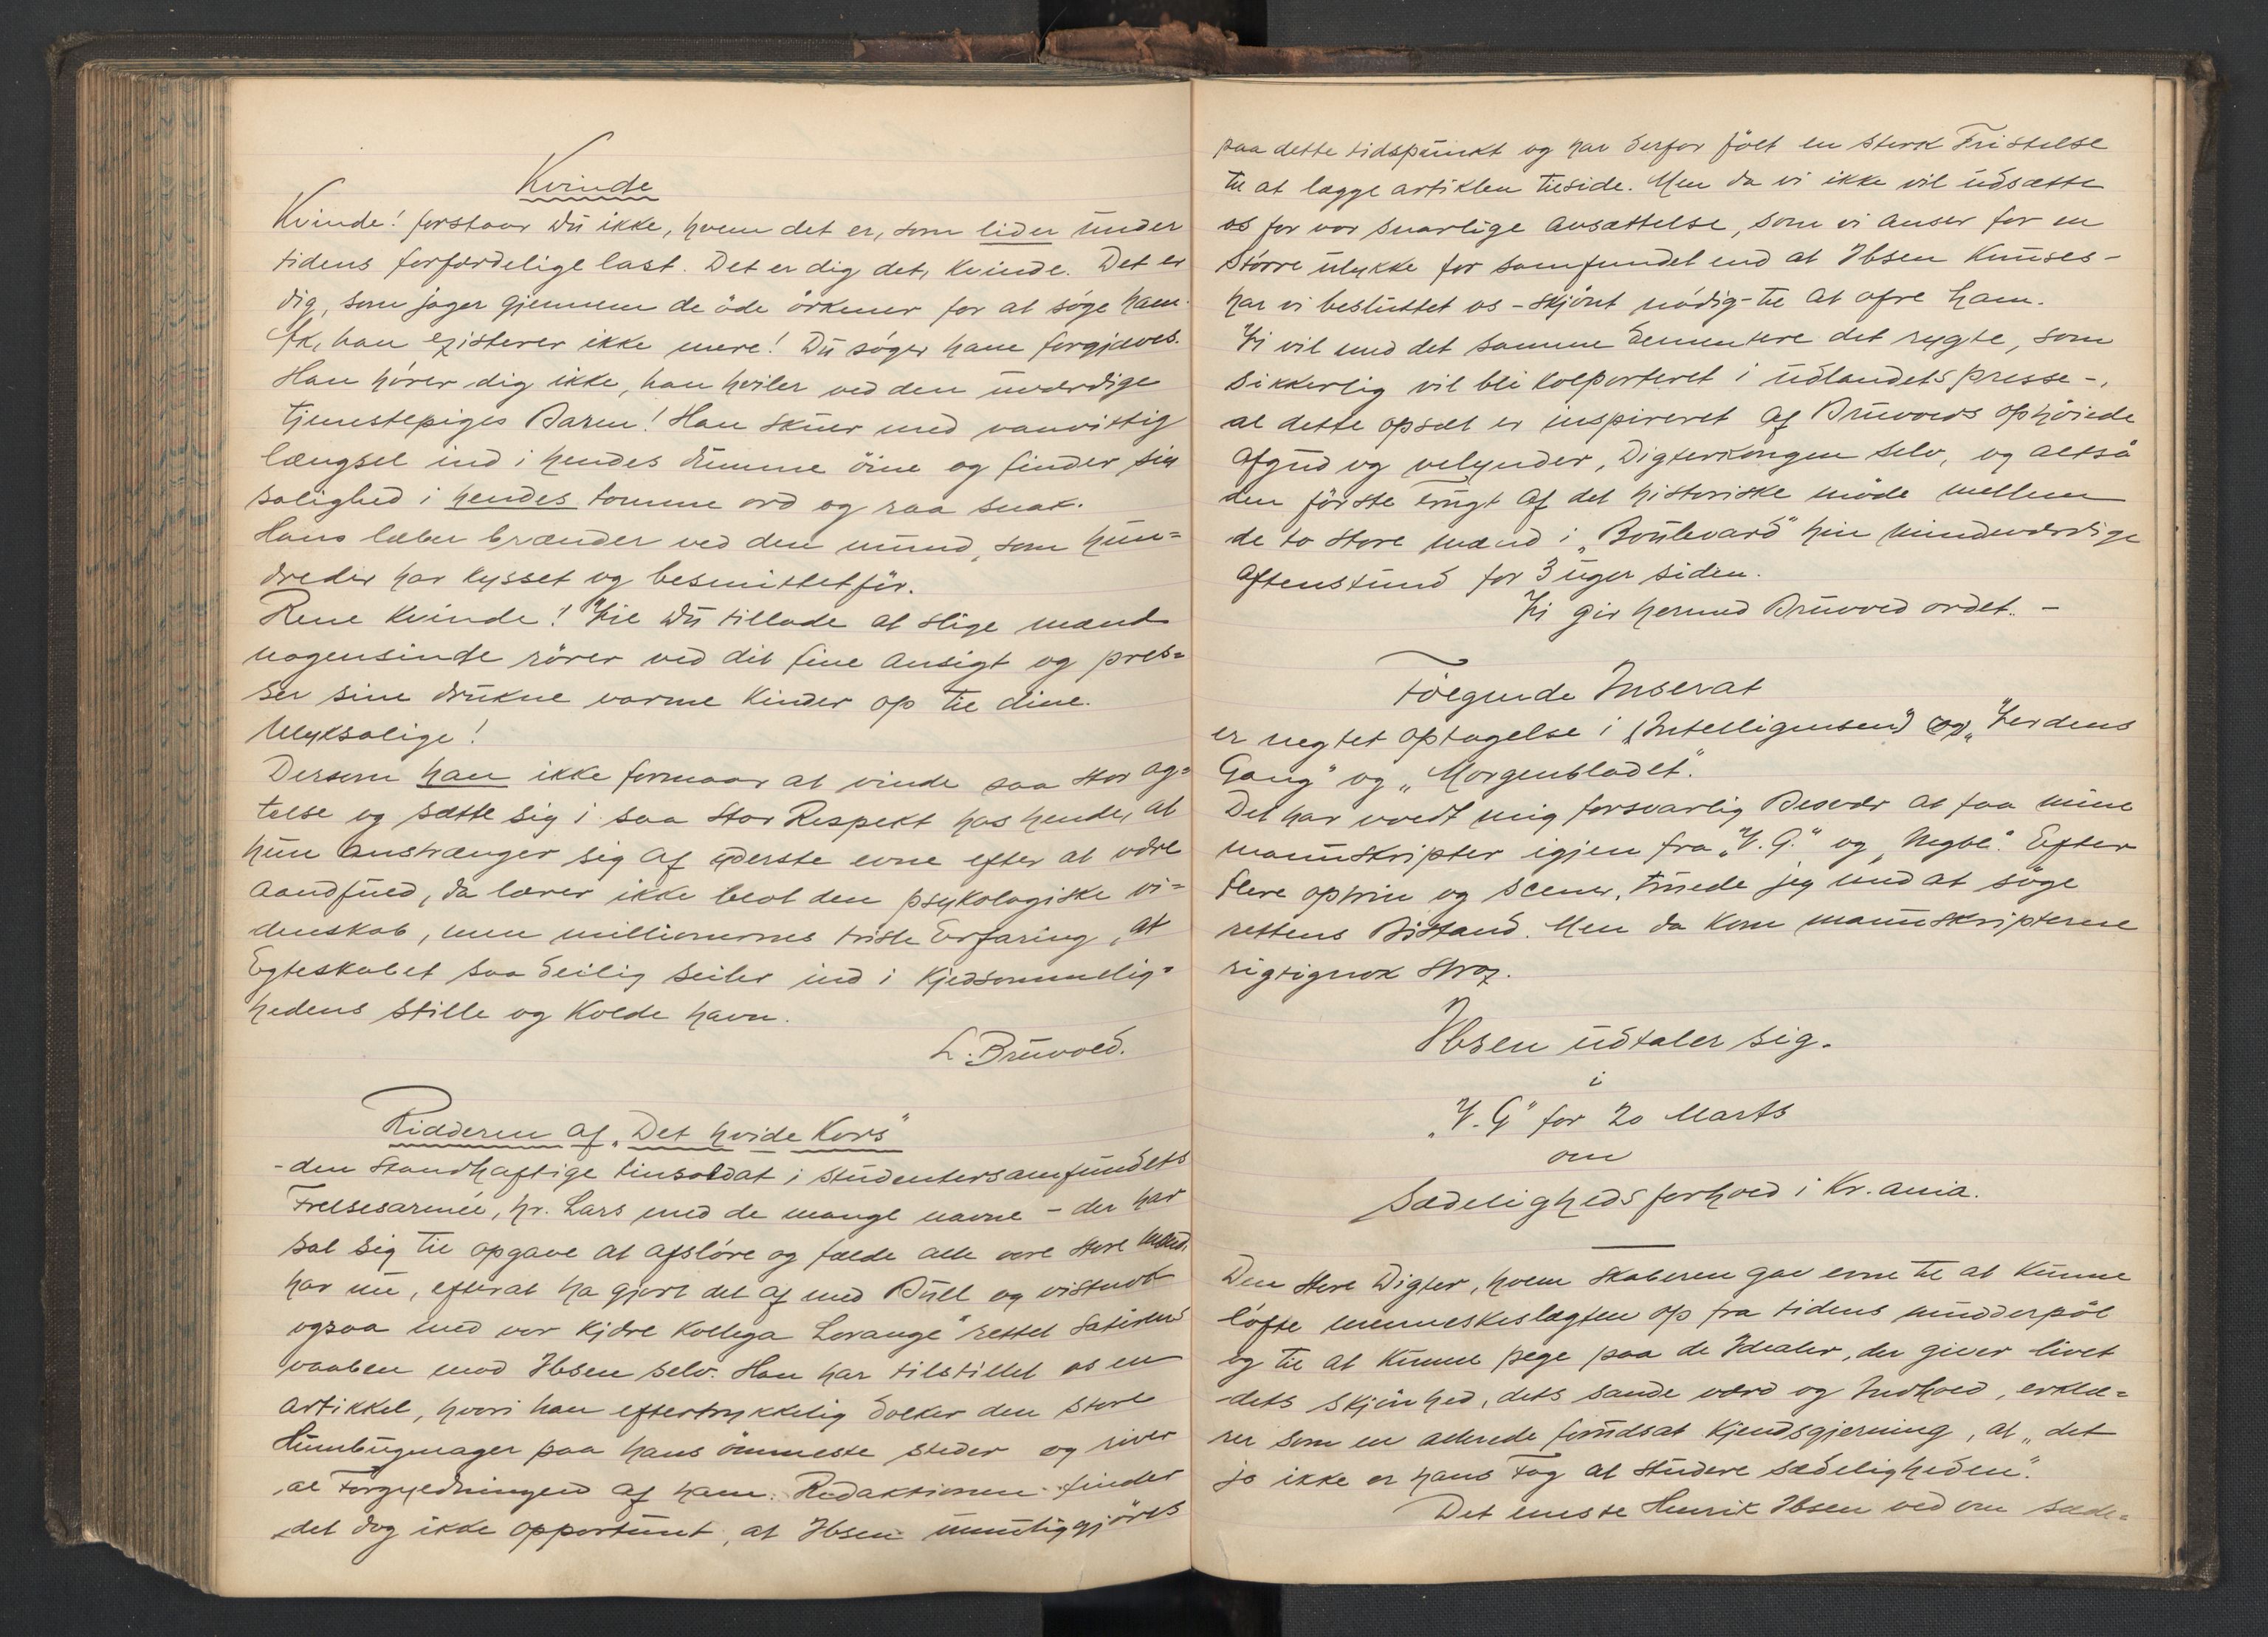 Kvinde
Kvinde! forstaar Du ikke, hvem det er, som lider under
tidens forfærdelige last. Det er dig det, Kvinde. Det er
dig, som jager gjennem de øde ørkener for at søge ham.
Ak, han existerer ikke mere! Du søger ham forgjæves.
Han hører dig ikke, han hviler ved den uværdige
tjenestepiges Barm! Han skuer med vanvittig
længsel ind i hendes dumme öine og finder sin
salighed i hendes tomme ord og raa snak.
Hans læber brænder ved den mund, som hun=
dreder har kysset og besmittet før.
Rene Kvinde! Vil Du tillade at slige mænd
nogensinde rører ved dit fine Ansigt og pres=
ser sine drukne varme Kinder op til dine.
Ulyksalige!
Dersom han ikke formaar at vinde saa stor ag=
telse og sætte sig i saa stor Respekt hos hende, at
hun anstrænger sig af yderste evne efter at være
aandfuld, da lærer ikke blot den psykologiske vi=
denskab, men millionernes triste Erfaring, at
Egteskabet saa deilig seiler ind i Kjedsommelig=
hedens stille og Kolde havn.
L. Bruvold.
Ridderen af „Det hvide Kors"
- den standhaftige tinsoldat i studentersamfundets
Frelsesarmée, hr. Lars med de mange navne - der har
sat sig til opgave at afsløre og fælde alle vore store mænd,
har nu, efterat ha gjort det af med Bull og vistnok
ogsaa med vor kjære Kollega Lorange" rettet Satirens
vaaben mod Ibsen selv. Han har tilstillet os en
Artikkel, hvori han eftertrykkelig dolker den store
Humbugmager paa hans ømmeste steder og river
al Forgyldningen af ham. Redaktionen finder
det dog ikke opportunt, at Ibsen umuliggjöres
paa dette tidspunkt og har derfor følt en sterk Fristelse
til at lægge artiklen tilside. Men da vi ikke vil udsætte
os for vor snarlige Avsættelse, som vi anser for en
Større ulykke for samfundet end at Ibsen Knuses -
har vi besluttet os - skjönt nödig - til at ofre ham.
Vi vil med det samme dementere det rygte, som
sikkerlig vil bli kolporteret i udlandets presse -,
at dette opsæt er inspireret af Bruvolds ophöiede
Afgud og velynder, Digterkongen selv, og altså
den første frugt af det historiske möde mellem
de to store mænd i „Boulevard" hin mindeværdige
Aftenstund for 3 uger siden.
Vi gir hermed Bruvold ordet. -
Følgende Inserat
er negtet optagelse i (Intelligensen) og „Verdens
Gang" og „Morgenbladet".
Det har voldt mig forsvarlig Besvær at faa mine
manuskripter igjen fra „V. G." og „Mgbl". Efter
flere optrin og scener, truede jeg med at söge
rettens Bistand. Men da kom manuskripterne
rigtignok strax.
Ibsen udtaler sig.
i
„V. G" for 20 Marts
om
Sædelighedsforhold i Kr.ania.
Den store Digter, hvem Skaberen gav evne til at kunne
løfte menneskeslægten op fra tidens mudderpöl
og til at kunne pege paa de Idealer, der giver livet
dets skjönhed, dets sande værd og Indhold, erklæ=
rer som en allerede forudsat Kjendsgjerning, at „det
jo ikke er hans Fag at studere sædeligheden".
Det eneste Henrik Ibsen ved om sæde=